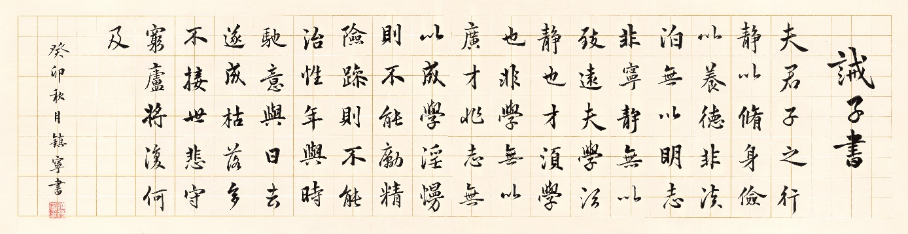 誡子書
夫君子之行
静以脩身儉
以養德非淡
泊無以明志
非寧静無以
致遠夫學須
静也才須學
也非學無以
廣才非志無
以成學淫慢
則不能勵精
險躁則不能
治性年與時
馳意與日去
遂成枯落多
不接世悲守
窮廬將復何
及
癸卯秋月鎮寧書